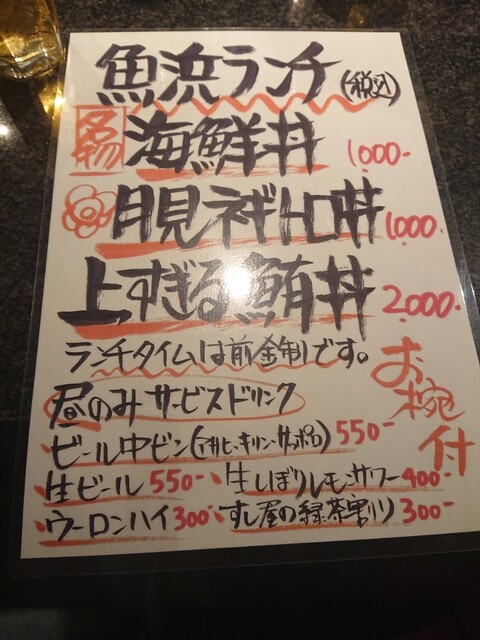 魚浜ランチ(税込)
名物 海鮮丼 1,000-
月見ネギトロ丼 1,000-
上すぎる鮪丼 2,000-
お椀付
ランチタイムは前金制です。
昼のみサービスドリンク
ビール中ビン(アサヒ・キリン・サッポロ) 550-
生ビール 550- 生しぼりレモンサワー 400-
ウーロンハイ 300- すし屋の緑茶割り 300-